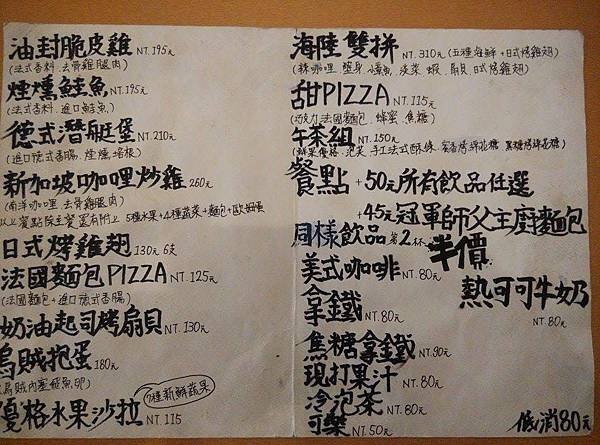 油封脆皮雞 NT.195元
(法式香料.去骨雞腿肉)
煙燻鮭魚 NT.195元
(法式香料.進口鮭魚)
德式潛艇堡 NT.210元
(進口德式香腸.煙燻培根)
新加坡咖哩炒雞 260元
(南洋咖哩.去骨雞腿肉)
以上餐點除主餐還有附上 5種水果+4種蔬菜+麵包+歐姆蛋
日式烤雞翅 130元 6支
法國麵包PIZZA NT.125元
(法國麵包+進口德式香腸)
奶油起司烤扇貝 NT.130元
烏賊抱蛋 180元
(烏賊內塞飛魚卵)
優格水果沙拉 NT.115
7種新鮮蔬果
海陸雙拼 NT.310元 (五種海鮮+日式烤雞翅)
甜PIZZA NT.115元
(巧克力.法國麵包.蜂蜜.焦糖)
午茶組 NT.150元
餐點 +50元所有飲品任選
+45元冠軍師父主廚麵包
同樣飲品第2杯半價
美式咖啡 NT.80元
熱可可牛奶
NT.80元
拿鐵 NT.80元
焦糖拿鐵 NT.90元
現打果汁 NT.80元
冷泡茶 NT.80元
可樂 NT.50元
低消80元